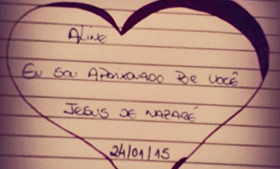 Aline
Eu sou apaixonado por você
Jesus de Nazaré
24/01/15